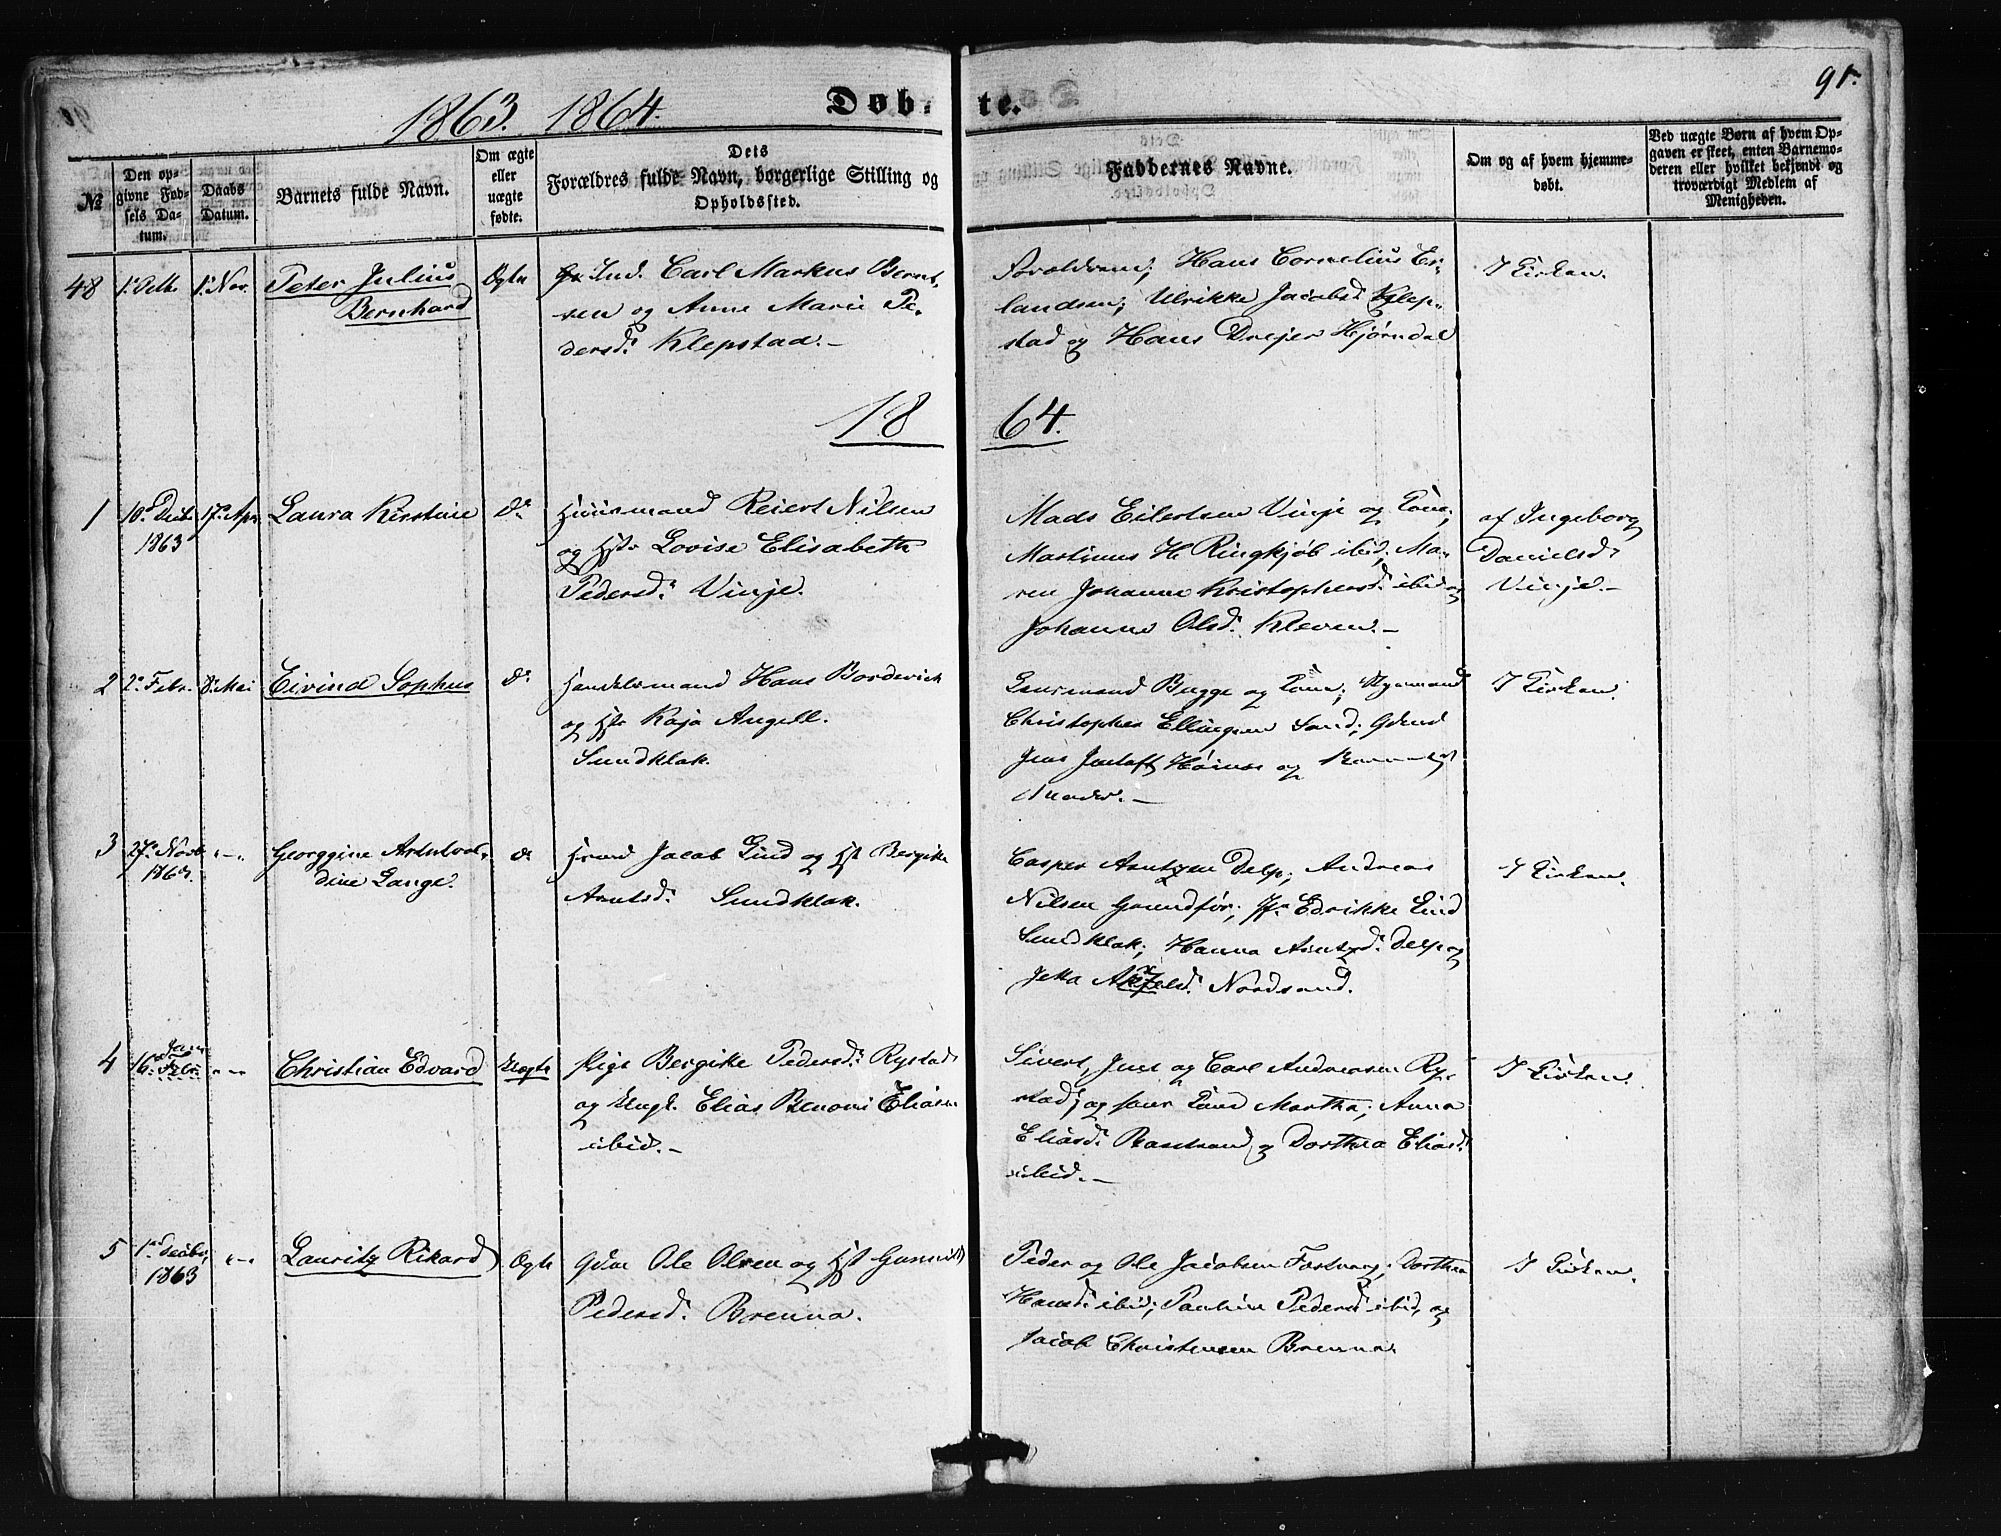 1863. 1864.
Døb- te.
91.
№
Den opgivne Fødsels Datum.
Daabs Datum.
Barnets fulde Navn.
Om ægte eller uægte fødte.
Dets Forældres fulde Navn, borgerlige Stilling og Opholdssted.
Faddernes Navne.
Om og af hvem hjemmedøbt.
Ved uægte Børn af hvem Opgaven er skeet, enten Barnemoderen eller hvilket bekjendt og troværdigt Medlem af Menigheden.
48 1. Octbr. 1. Nov. Peter Julius
Bernhard
Ægte
Ind. Carl Markus Bernt-
sen og Anne Marie Pe-
dersd. Klepstad.-
Forældrene; Hans Cornelius Er-
landsen; Ulrikke Jacobsd. Klep-
stad og Hans Drejer Hjørndal
I Kirken.
18 64.
1 10. Decbr.
1863
17. Apr. Laura Kirstine do
Huusmand Reiert Nilsen
og Hst. Lovise Elisabeth
Pedersd. Vinje.
Mads Eilertsen Vinje og Kone,
Martinus H. Ringkjøb ibid, Ma-
ren Johanna Kristophersd. ibid og
Johanne Olsd. Kleven.-
af Ingeborg
Danielsd.
Vinje.-
2 2. Febr. 8. Mai Eivind Sophus do
Handelsmand Hans Borderich
og Hst. Kaja Angell.
Sundklak.
Lensmand Bugge og Kone;
Christopher Ellingsen Sand;
Jens
I Kirken.
3 27. Novbr.
1863.
-"- Georggine Arntvol-
dine Lange.
do
Jacob Lind og Hst. Bergitte
Arntsd. Sundklak.
Casper Arntzen Delp; Andreas
Nilsen Grundfør; Edrikke Lind
Sundklak; Hanna Arntzd. Delp og
Jetta Nordsand.
I Kirken.
4 16. Jan
Febr.
-"- Christian Edvard Uægte
Pige Bergitte Pedersd. Rystad
og Ungk. Elias Benoni Eliasen
ibid.-
Sivert, Jens og Carl Andreasen Ry-
stad; og Kone Martha; Anna
Eliasd. og Dorthea Eliasd.
ibid.-
I Kirken.
5 1. Decbr.
1863
-"- Lauritz Rikard Ægte
Gdm. Ole Olsen og Hst. Gunnild
Pedersd. Brenna.
Peder og Ole Jacobsen Dorthea
Hansd. ibid; Pauline Pedersd. ibid, og
Jacob Christensen Brenna.
I Kirken.